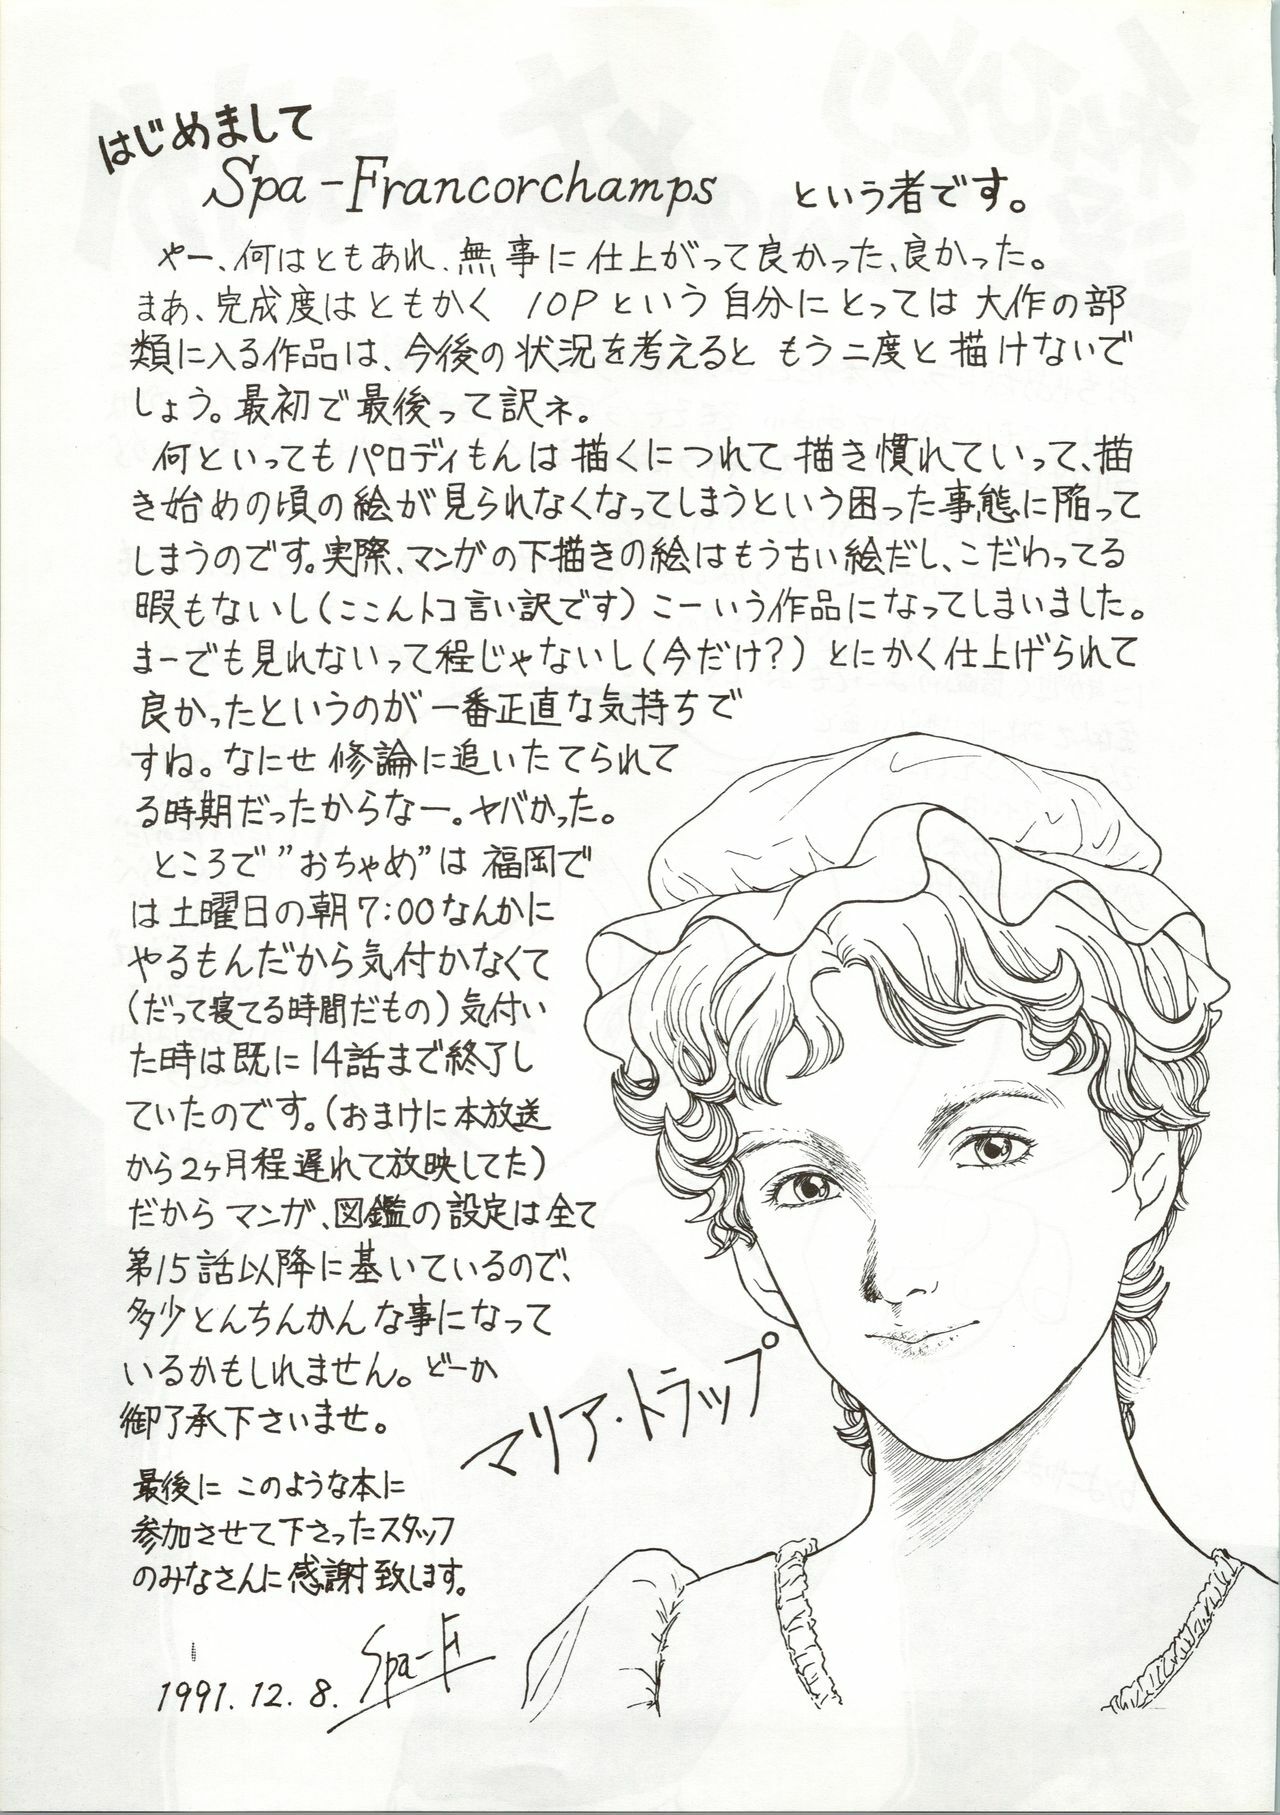 はじめまして
Spa-Francorchamps という者です。
やー、何はともあれ、無事に仕上がって良かった、良かった。
まあ、完成度はともかく 10Pという自分にとっては大作の部
類に入る作品は、今後の状況を考えるともう二度と描けないで
しょう。最初で最後って訳ネ。
何といってもパロディもんは描くにつれて描き慣れていって、描
き始めの頃の絵が見られなくなってしまうという困った事態に陥って
しまうのです。実際、マンガの下描きの絵はもう古い絵だし、こだわってる
暇もないし(ここんトコ言い訳です)こーいう作品になってしまいました。
まーでも見れないって程じゃないし(今だけ?)とにかく仕上げられて
良かったというのが一番正直な気持ちで
すね。なにせ修論に追いたてられて
る時期だったからなー。ヤバかった。
ところで"おちゃめ"は福岡で
は土曜日の朝7:00なんかに
やるもんだから気付かなくて
(だって寝てる時間だもの)気付い
た時は既に14話まで終了し
ていたのです。(おまけに本放送
から2ヶ月程遅れて放映してた)
だからマンガ、図鑑の設定は全て
第15話以降に基いているので、
多少とんちんかんな事になって
いるかもしれません。どーか
御了承下さいませ。
マリア・トラップ
最後にこのような本に
参加させて下さったスタッフ
のみなさんに感謝致します。
1991.12.8. Spa-F